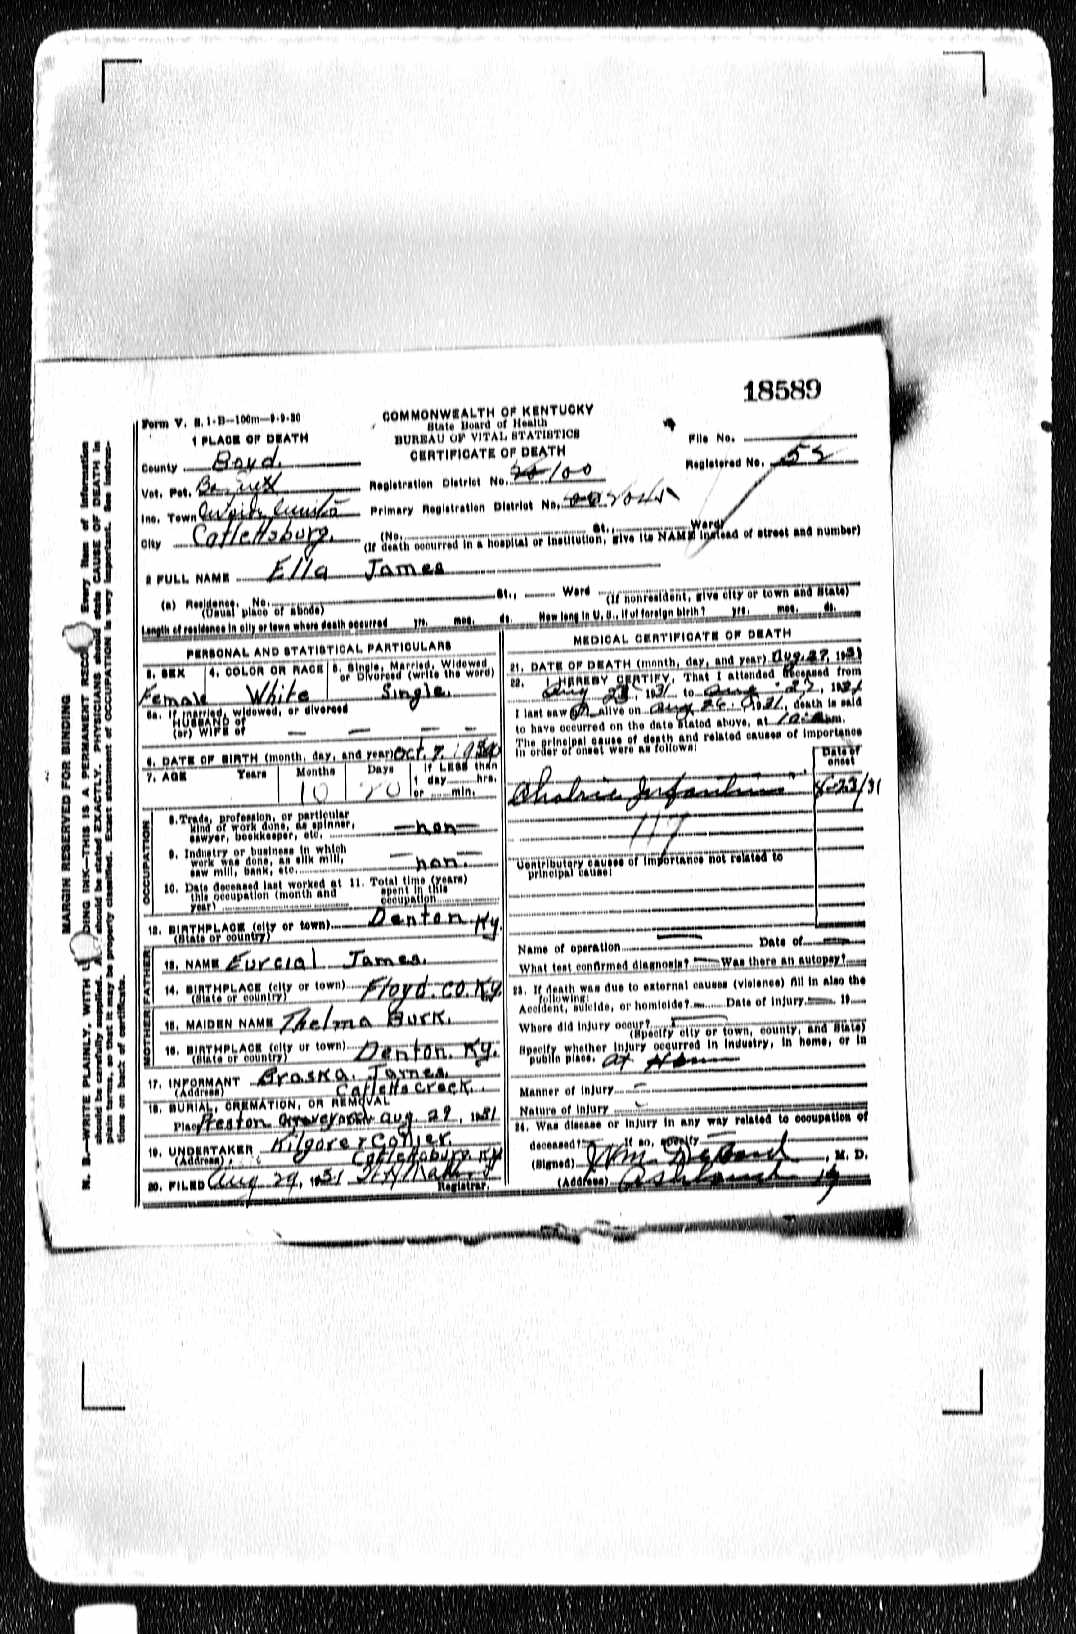 18589
Form V. S. 1-B—100m—9-9-30
COMMONWEALTH OF KENTUCKY
State Board of Health
BUREAU OF VITAL STATISTICS
CERTIFICATE OF DEATH
1 PLACE OF DEATH
File No.
County Boyd.
Registered No. 52
Vot. Pct.
Registration District No. 100
Inc. Town
Primary Registration District No.
City Catlettsburg.
(No. St., Ward)
(If death occurred in a hospital or institution, give its NAME instead of street and number)
2 FULL NAME Ella James
(a) Residence. No. St., Ward
(Usual place of abode) (If nonresident, give city or town and State)
Length of residence in city or town where death occurred yrs. mos. ds. How long in U. S., if of foreign birth? yrs. mos. ds.
PERSONAL AND STATISTICAL PARTICULARS
3. SEX 4. COLOR OR RACE 5. Single, Married, Widowed, or Divorced (write the word)
Female White Single.
5a. If married, widowed, or divorced
HUSBAND of
(or) WIFE of — — — —
6. DATE OF BIRTH (month, day, and year) Oct. 7. 1930
7. AGE Years Months Days If LESS than
1 day hrs.
or min.
10 20
OCCUPATION
8. Trade, profession, or particular
kind of work done, as spinner,
sawyer, bookkeeper, etc. —non—
9. Industry or business in which
work was done, as silk mill,
saw mill, bank, etc. non.
10. Date deceased last worked at
this occupation (month and
year)
11. Total time (years)
spent in this
occupation
12. BIRTHPLACE (city or town) Denton. Ky.
(State or country)
FATHER
13. NAME Eurcial James.
14. BIRTHPLACE (city or town) Floyd. Co. Ky.
(State or country)
MOTHER
15. MAIDEN NAME Thelma Burk.
16. BIRTHPLACE (city or town) Denton. Ky.
(State or country)
17. INFORMANT Braska. James.
(Address) Catletts Creek.
18. BURIAL, CREMATION, OR REMOVAL
Place Preston Graveyard Aug. 29, 1931
19. UNDERTAKER Kilgore & Collier.
(Address) Catlettsburg. Ky
20. FILED Aug 29, 1931
Registrar.
MEDICAL CERTIFICATE OF DEATH
21. DATE OF DEATH (month, day, and year) Aug. 27, 1931
22. I HEREBY CERTIFY, That I attended deceased from
Aug 23, 1931 to Aug 27, 1931
I last saw alive on Aug 26, 1931, death is said
to have occurred on the date stated above, at m.
The principal cause of death and related causes of importance
in order of onset were as follows:
Date of
onset
Infantum 8-23/31
117
Contributory causes of importance not related to
principal cause:
Name of operation — Date of —
What test confirmed diagnosis? — Was there an autopsy?
23. If death was due to external causes (violence) fill in also the
following:
Accident, suicide, or homicide? — Date of injury — 19
Where did injury occur?
(Specify city or town, county, and State)
Specify whether injury occurred in industry, in home, or in
public place. at Home
Manner of injury
Nature of injury
24. Was disease or injury in any way related to occupation of
deceased? If so, specify
(Signed) M. D.
(Address) Ashland Ky
MARGIN RESERVED FOR BINDING
N. B.—WRITE PLAINLY, WITH DING INK—THIS IS A PERMANENT RECO Every item of information
should be carefully supplied. AGE should be stated EXACTLY. PHYSICIANS should state CAUSE OF DEATH in
plain terms, so that it may be properly classified. Exact statement of OCCUPATION is very important. See instruc-
tions on back of certificate.